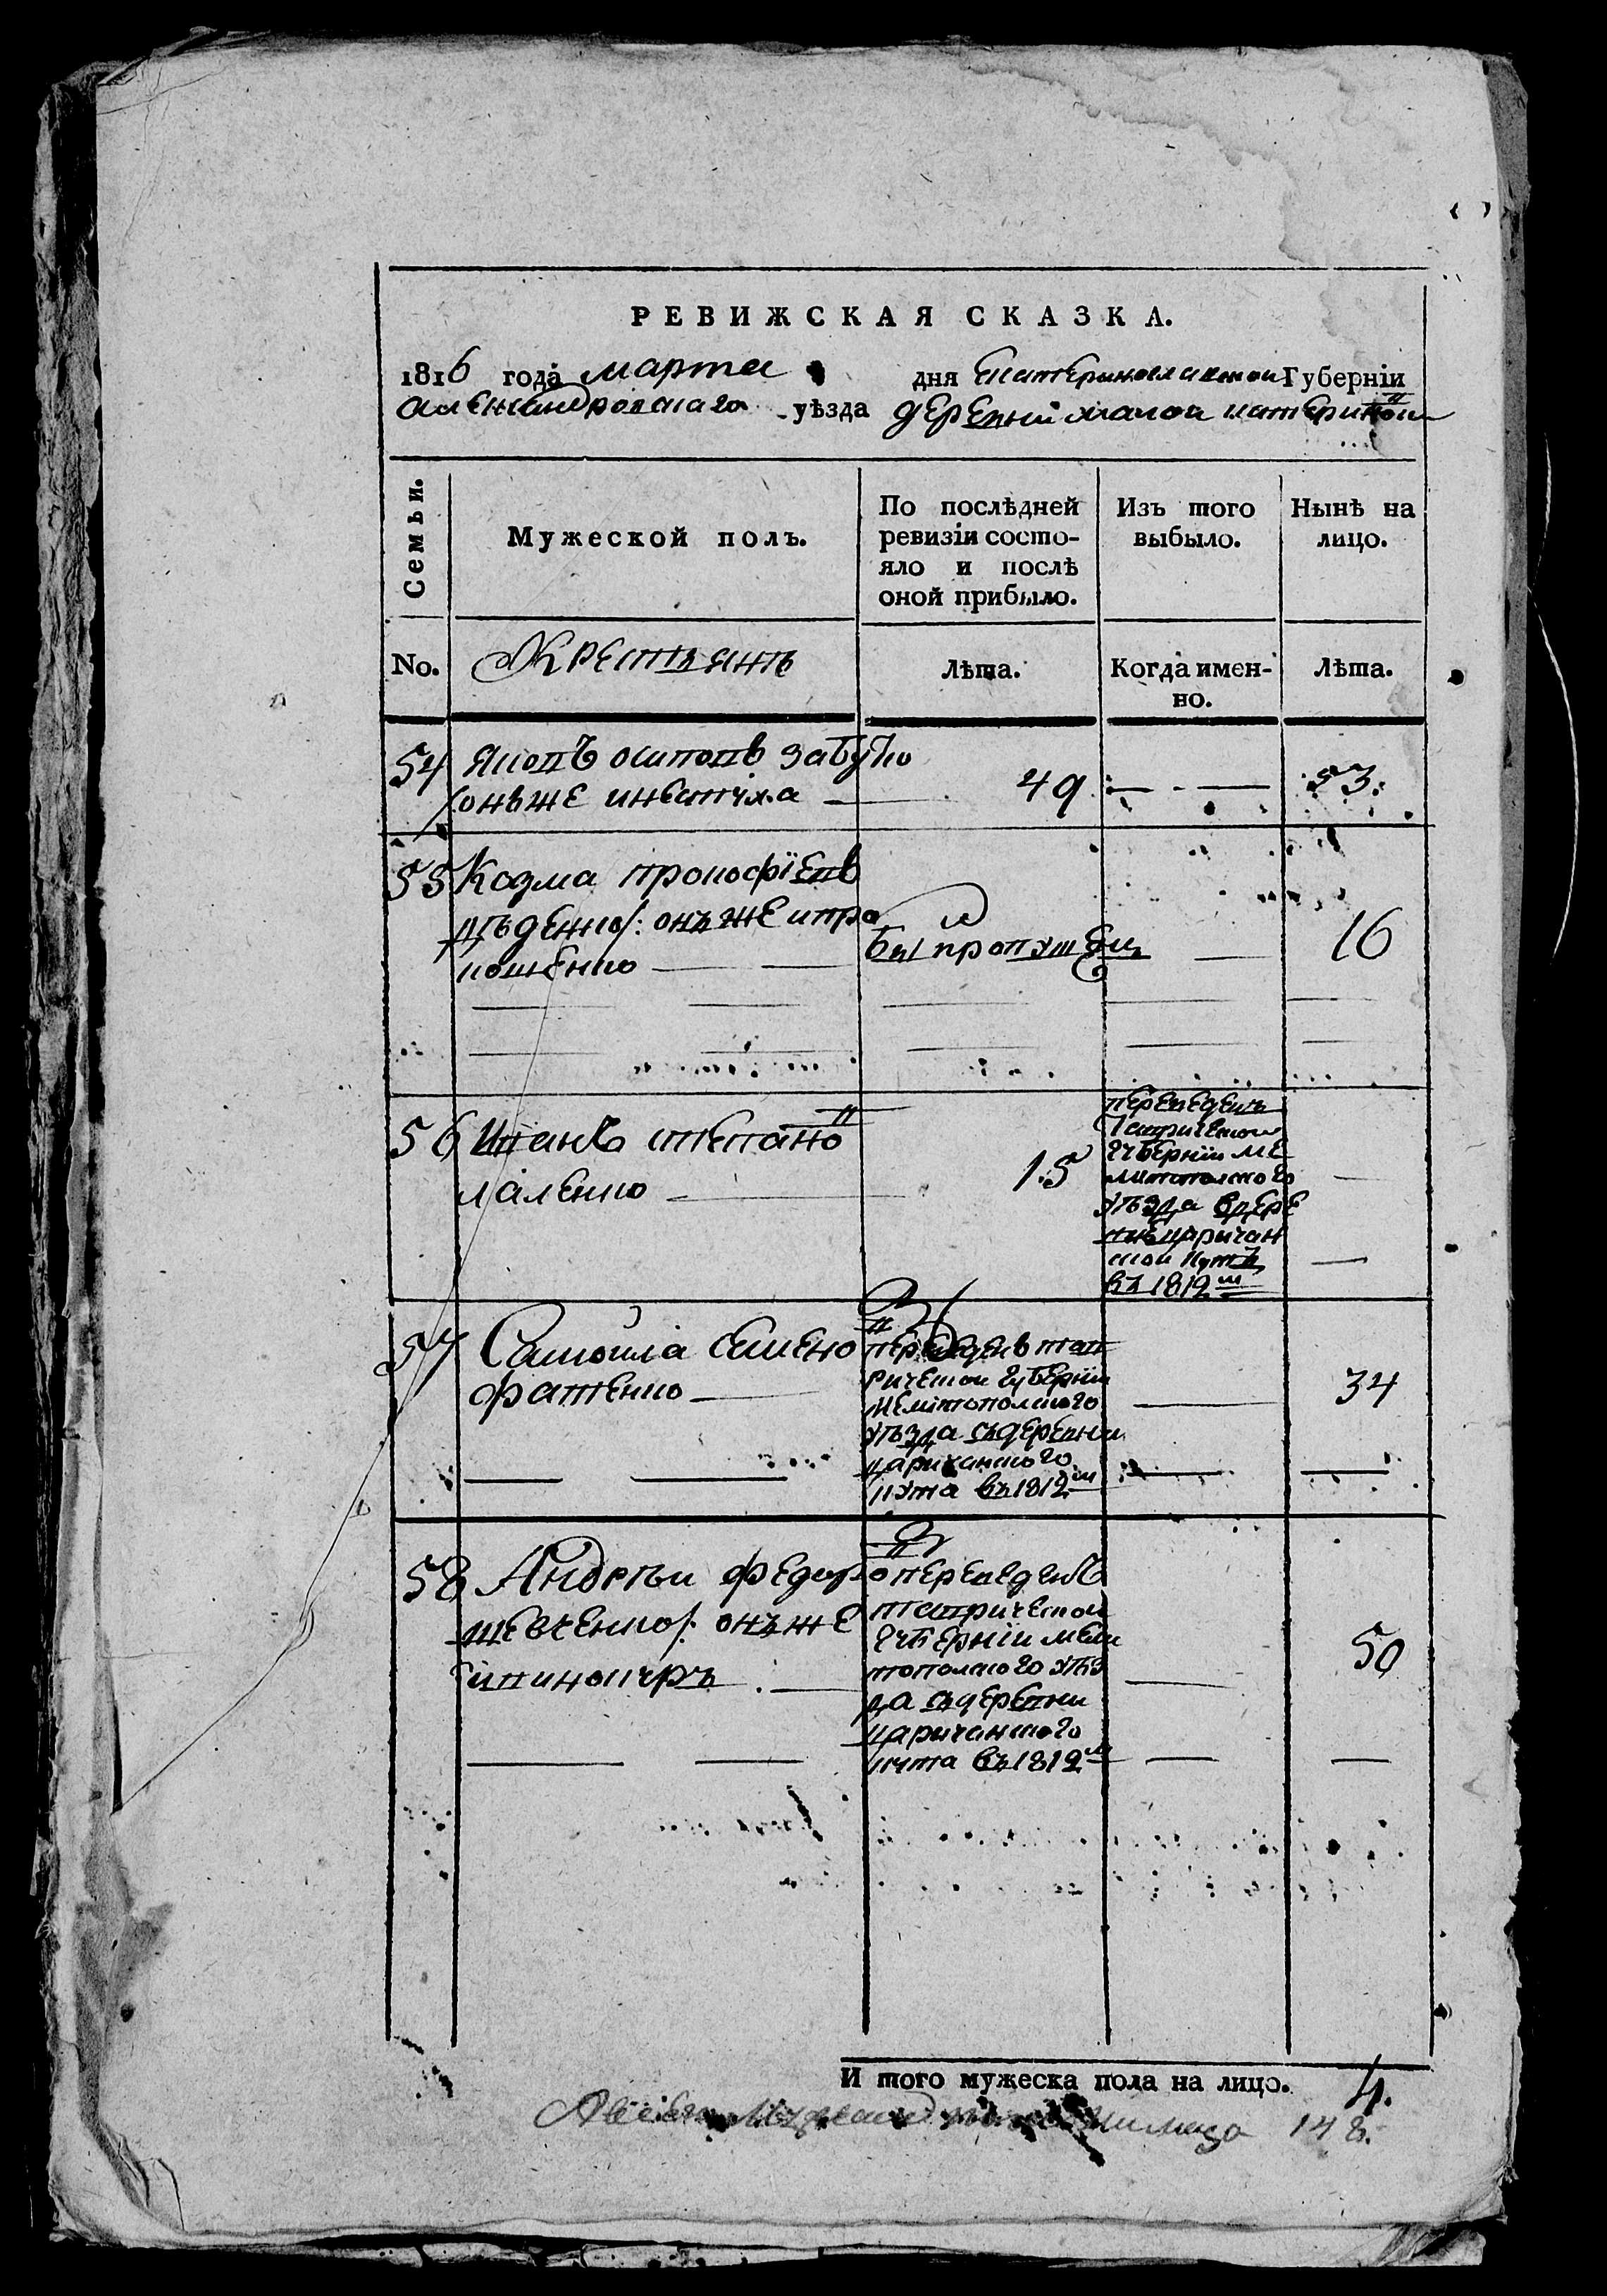 РЕВИЖСКАЯ СКАЗКА.
1816 года марта дня Екатеринославской Губерніи
Александровскаго уѣзда деревни малой катериновки
Семьи.
Мужеской полъ.
По послѣдней ревизіи состо-
яло и послѣ
оной прибыло.
Изъ того
выбыло.
Нынѣ на
лицо.
No.
Крестьянъ
Лѣта.
Когда имен-
но.
Лѣта.
54 Яковъ осиповъ забуко
онъже 49 53.
55 Козма прокофіевъ
дѣденко/: онъ же и про
кошенко был пропущенъ 16
56 Иванъ степано
маленко 1.5
переведенъ
Таврической
губерніи ме
литополского
уѣзда вдере
вню царичан
ской кутъ
въ 1812м
57 Самойла семено
фатенко
переведенъ тав
рической губерніи
мелитополского
уѣзда съдеревни
царичанского
кута въ 1812м
34
58 Андрѣи федоро
шевченко/: онъ же
и пинокуръ
переведенъ
таврической
губерніи мели
тополского уѣз
да съдеревни
царичанского
кута въ 1812м
50
И того мужеска пола на лицо. 4.